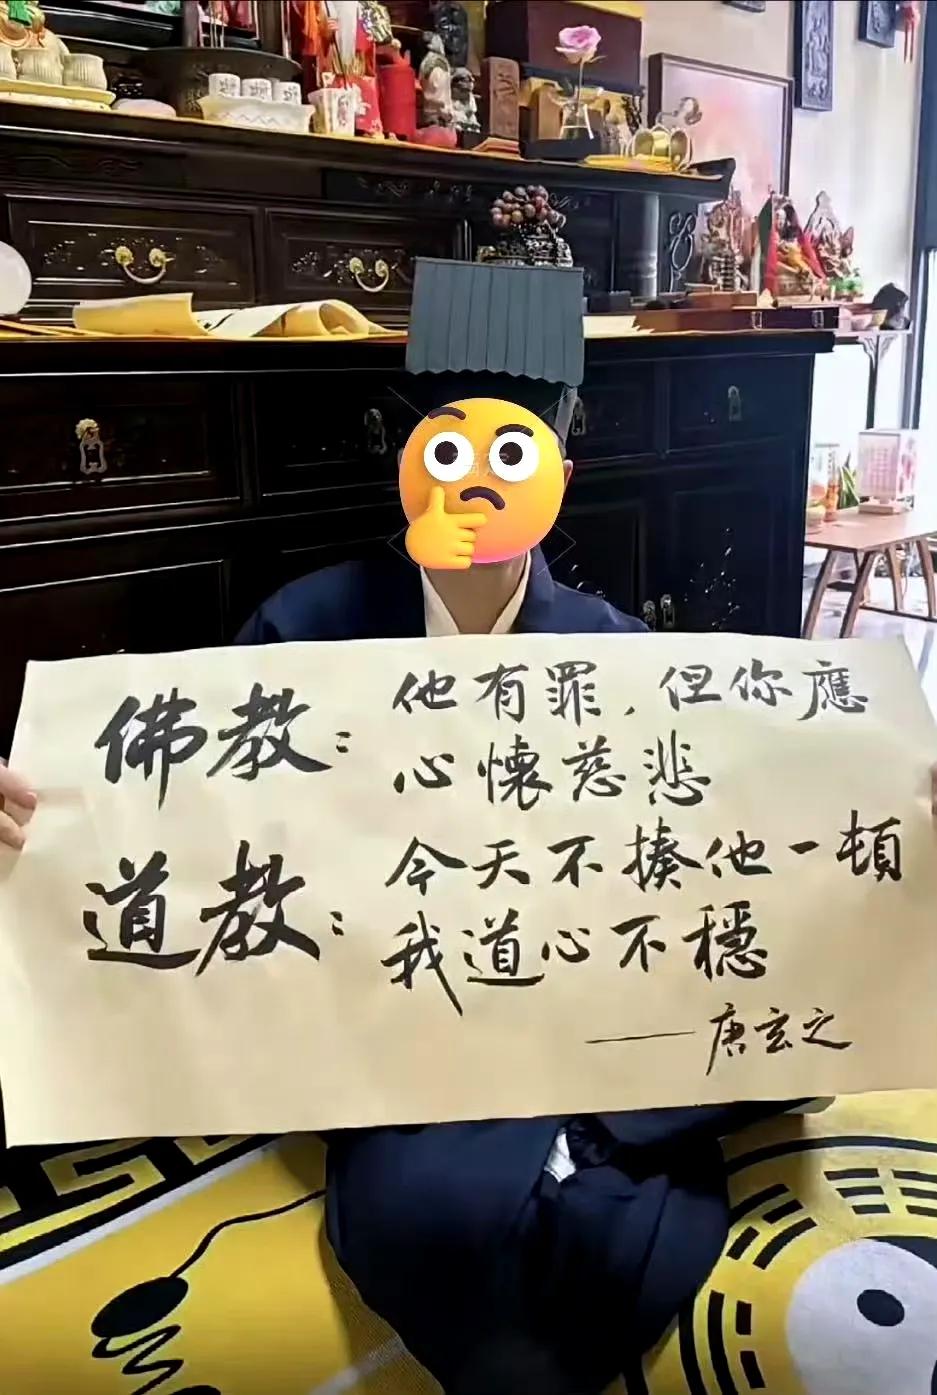 佛教：他有罪，但你應
心懷慈悲
道教：今天不揍他一頓
我道心不穩
——唐玄之